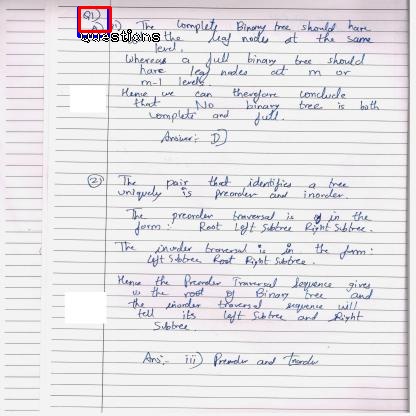 Q1)
questions
A) (1) The Complete Binary tree should have
the leaf nodes at the same
level.
Whereas a full binary tree should
have leaf nodes at m or
m-1 levels
Hence we can therefore conclude
that No binary tree is both
complete and full.
Answer:- D]
(2) The pair that identifies a tree
uniquely is preorder and inorder.
The preorder traversal is in the
form: Root Left Subtree Right Subtree.
The inorder traversal is in the form:
Left Subtree Root Right Subtree.
Hence the Preorder Traversal Sequence gives
us the root of Binary tree and
the inorder traversal sequence will
tell its left Subtree and Right
Subtree
Ans:- iii) Preorder and Inorder